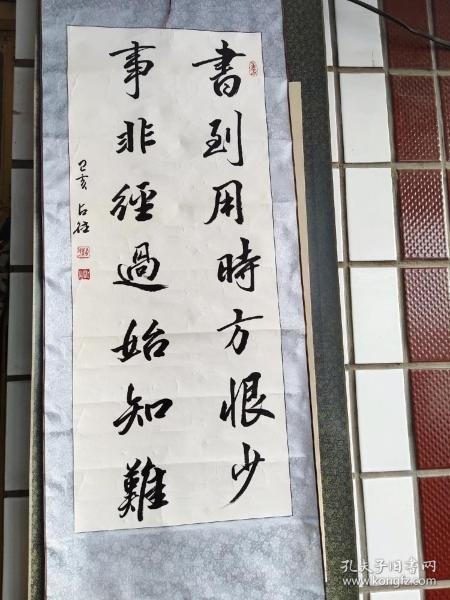 書到用時方恨少
事非經過始知難
己亥 占社
孔夫子旧书网
www.kongfz.com